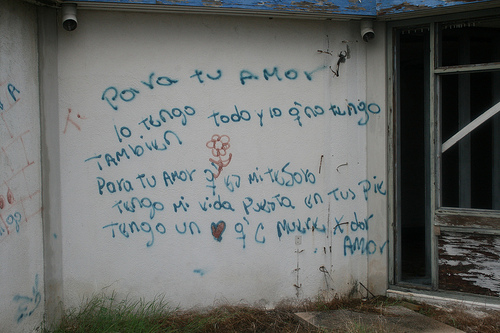 Para tu AMOR
lo tengo todo y lo q' no tengo
TAMBIEN
Para TU AMOR q es mi tesoro
Tengo Mi vida Puesta en Tus Pie
Tengo un q' c Muere x dor
AMOR